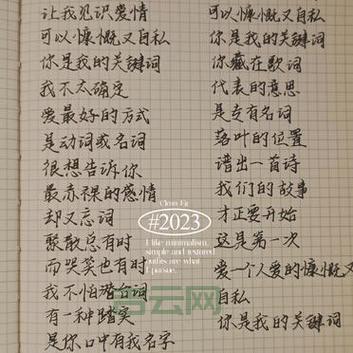 让我见识爱情
可以慷慨又自私
你是我的关键词
我不太确定
爱最好的方式
是动词或名词
很想告诉你
最赤裸的感情
却又忘词
聚散总有时
而哭笑也有时
我不怕潜台词
有一种踏实
是你口中有我名字
可以慷慨又自私
你是我的关键词
你藏在歌词
代表的意思
是专有名词
落叶的位置
谱出一首诗
我们的故事
才正要开始
这是第一次
爱一个人爱的慷慨又
自私
你是我的关键词
Clean Fit
#2023
I like minimalism,
simple and textured
outfits are what
I pursue.